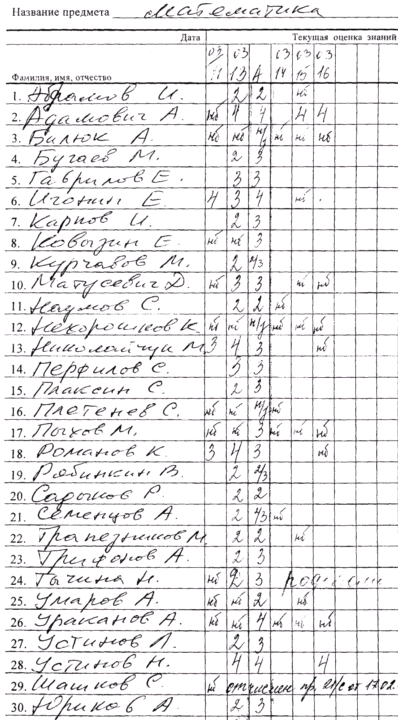 Название предмета Математика
Дата Текущая оценка знаний
03 03 03 03 03
11 13 А 14 15 16
Фамилия, имя, отчество
1. Абрамов И. 2 2 нб
2. Адамович А. нб 4 4 4 4
3. Билюк А. нб нб н/з нб нб нб
4. Бугаев М. 2 3
5. Гаврилов Е. 3 3
6. Игонин Е 4 3 4 нб
7. Карпов И. 2 3
8. Ковызин Е. нб нб 3
9. Курчавов М. 2 2/3
10. Матусевич Д. нб 3 3 нб нб
11. Наумов С. 2 2 нб
12. Нехорошков К. нб нб н/з нб нб нб
13. Николайчук М 3 4 3 нб
14. Перфилов С. 3 3
15. Плаксин С. 2 3
16. Плетенев С. нб нб н/з нб
17. Пыхов М. нб нб 3 нб нб нб
18. Романов К. 3 4 3 нб
19. Рябинкин В. 2 2/3
20. Садыков Р. 2 2
21. Семенцов А. 2 4/3 нб
22. Трапезников М. 2 2 нб
23. Трифонов А. 2 3
24. Тючина Н. нб 2 3
25. Умаров А. нб нб 2 нб
26. Ураканов А. нб нб 4 нб нб нб
27. Устинов Л. 2 3
28. Устинов Н. 4 4 4
29. Шашков С. нб отчислен пр. 21/с от 17.02.
30. Юриков А 2 3